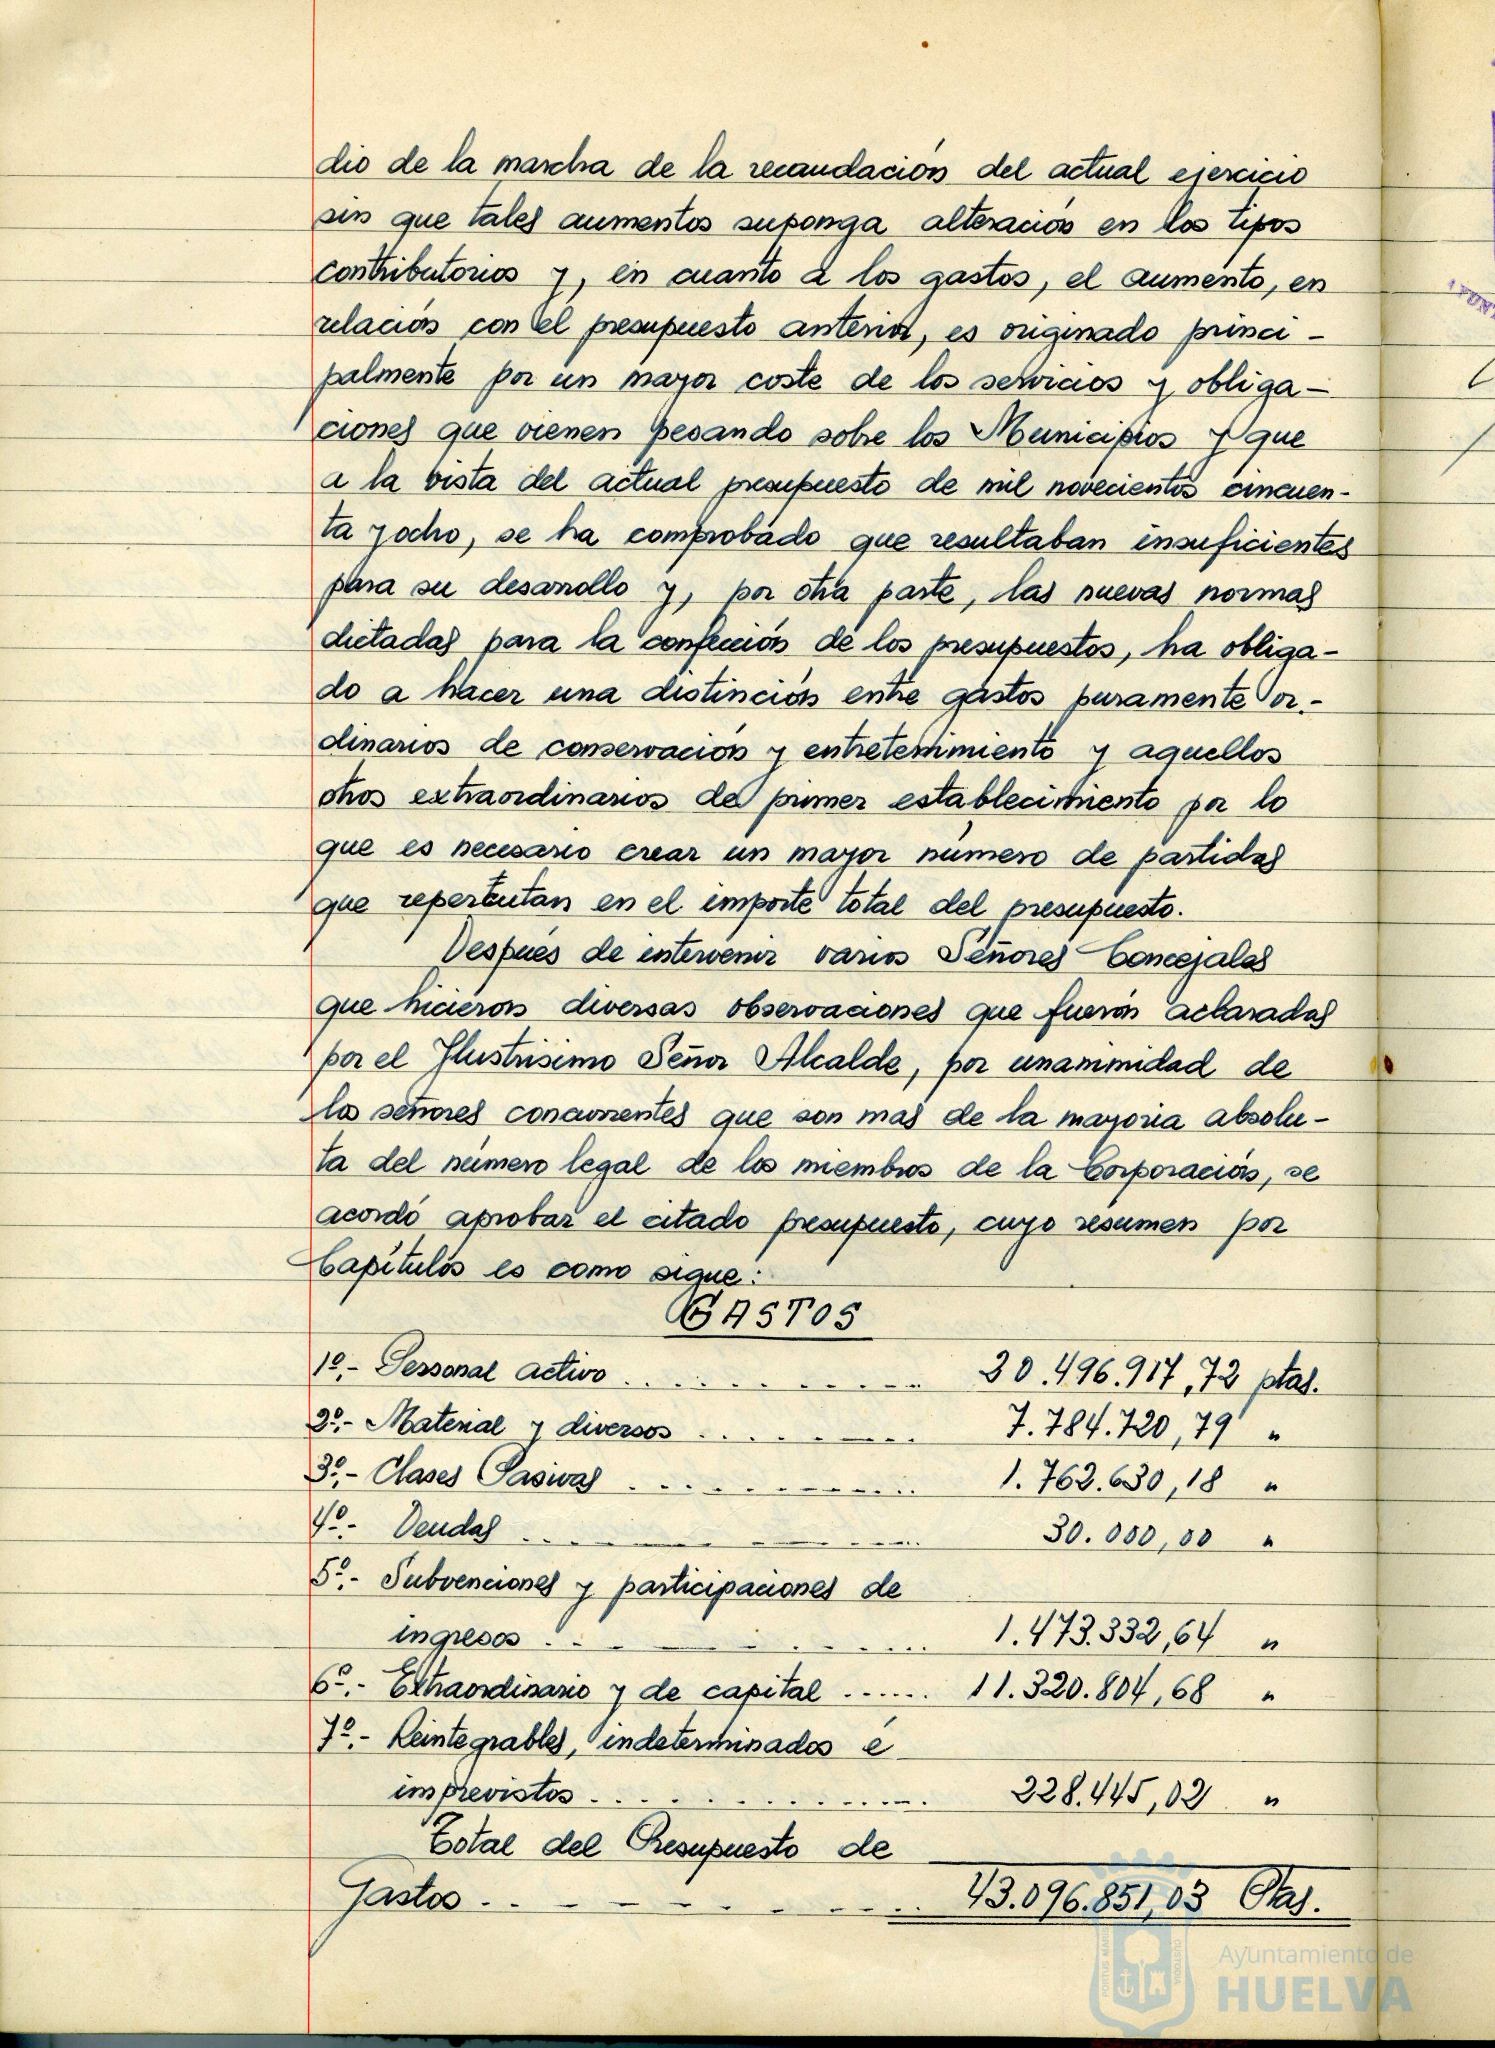 dio de la marcha de la recaudación del actual ejercicio
sin que tales aumentos suponga alteración en los tipos
contributorios y, en cuanto a los gastos, el aumento, en
relación con el presupuesto anterior, es originado princi-
palmente por un mayor coste de los servicios y obliga-
ciones que vienen pesando sobre los Municipios y que
a la vista del actual presupuesto de mil novecientos cincuen-
ta y ocho, se ha comprobado que resultaban insuficientes
para su desarrollo y, por otra parte, las nuevas normas
dictadas para la confección de los presupuestos, ha obliga-
do a hacer una distinción entre gastos puramente or.-
dinarios de conservación y entretenimiento y aquellos
otros extraordinarios de primer establecimiento por lo
que es necesario crear un mayor número de partidas
que repercutan en el importe total del presupuesto.
Después de intervenir varios Señores Concejales
que hicieron diversas observaciones que fuerón aclaradas
por el Ilustrisimo Señor Alcalde, por unanimidad de
los señores concurrentes que son mas de la mayoria absolu-
ta del número legal de los miembros de la Corporación, se
acordó aprobar el citado presupuesto, cuyo resumen por
Capítulos es como sigue:
GASTOS
1º.- Personal activo ............ 20.496.917,72 ptas.
2º.- Material y diversos ......... 7.784.720,79 "
3º.- Clases Pasivas ............ 1.762.630,18 "
4º.- Deudas ............ 30.000,00 "
5º.- Subvenciones y participaciones de
ingresos ............ 1.473.332,64 "
6º.- Extraordinario y de capital ...... 11.320.804,68 "
7º.- Reintegrables, indeterminados é
imprevistos ............ 228.445,02 "
Total del Presupuesto de
Gastos ............ 43.096.851,03 Ptas.
Ayuntamiento de
HUELVA